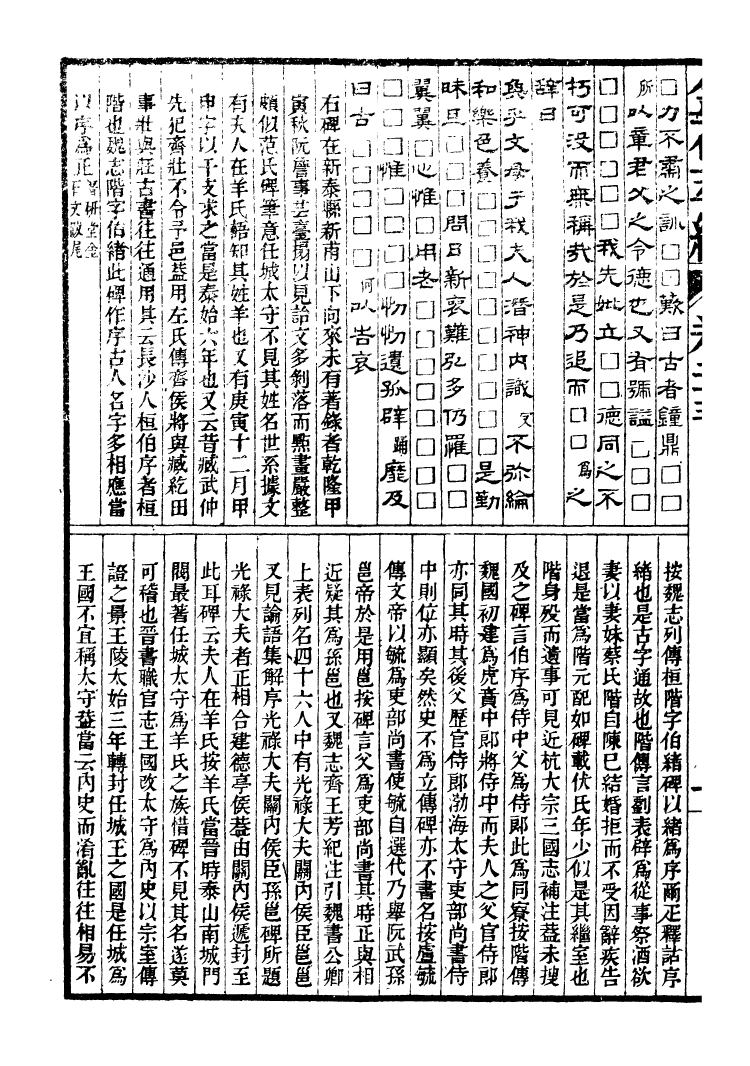 □力不肅之訓□□□歎曰古者鐘鼎□□
所以章君父之令德也又有號謚□□□
□□□□□□我先妣立□□德同之不
朽可没而無稱哉於是乃追而□□為之
辭曰
與乎文母于我夫人潛神内識 不弥綸
和樂色養□□□□□□□□□□是勤
昧旦□□□問日新哀難弘多仍罹□□
翼翼□心惟□用老□□□□□□□□
□□□惟□□□□□物物遺孤辟踊靡及
曰吉□□□□□□何以告哀
右碑在新泰縣新甫山下向來未有著錄者乾隆甲
寅秋阮詹事芸臺搨以見詒文多剝落而點畫嚴整
頗似范氏碑筆意任城太守不見其姓名世系據文
有夫人在羊氏語知其姓羊也又有庚寅十二月甲
申字以干支求之當是泰始六年也又云昔臧武仲
先犯齊壯不令予邑葢用左氏傳齊侯將與臧紇田
事壯與莊古書往往通用其云長沙人桓伯序者桓
階也魏志階字伯緒此碑作序古人名字多相應當
以序為正潛研堂金石文跋尾
按魏志列傳桓階字伯緒碑以緒為序爾疋釋詁序
緒也是古字通故也階傳言劉表辟為從事祭酒欲
妻以妻妹蔡氏階自陳已結婚拒而不受因辭疾告
退是當為階元配如碑載伏氏年少似是其繼室也
階身殁而遺事可見近杭大宗三國志補注葢未搜
及之碑言伯序為侍中父為侍郎此為同寮按階傳
魏國初建為虎賁中郎將侍中而夫人之父官侍郎
亦同其時其後父歷官侍郎渤海太守吏部尚書侍
中則位亦顯矣然史不為立傳碑亦不書名按盧毓
傳文帝以毓為吏部尚書使毓自選代乃舉阮武孫
邕帝於是用邕按碑言父為吏部尚書其時正與相
近疑其為孫邕也又魏志齊王芳紀注引魏書公卿
上表列名四十六人中有光祿大夫關內侯臣邕邕
又見論語集解序光祿大夫關內侯臣孫邕碑所題
光祿大夫者正相合建德亭侯葢由關內侯遞封至
此耳碑云夫人在羊氏按羊氏當晉時泰山南城門
閥最著任城太守為羊氏之族惜碑不見其名遂莫
可稽也晉書職官志王國改太守為內史以宗室傳
證之景王陵太始三年轉封任城王之國是任城為
王國不宜稱太守葢當云內史而淆亂往往相易不